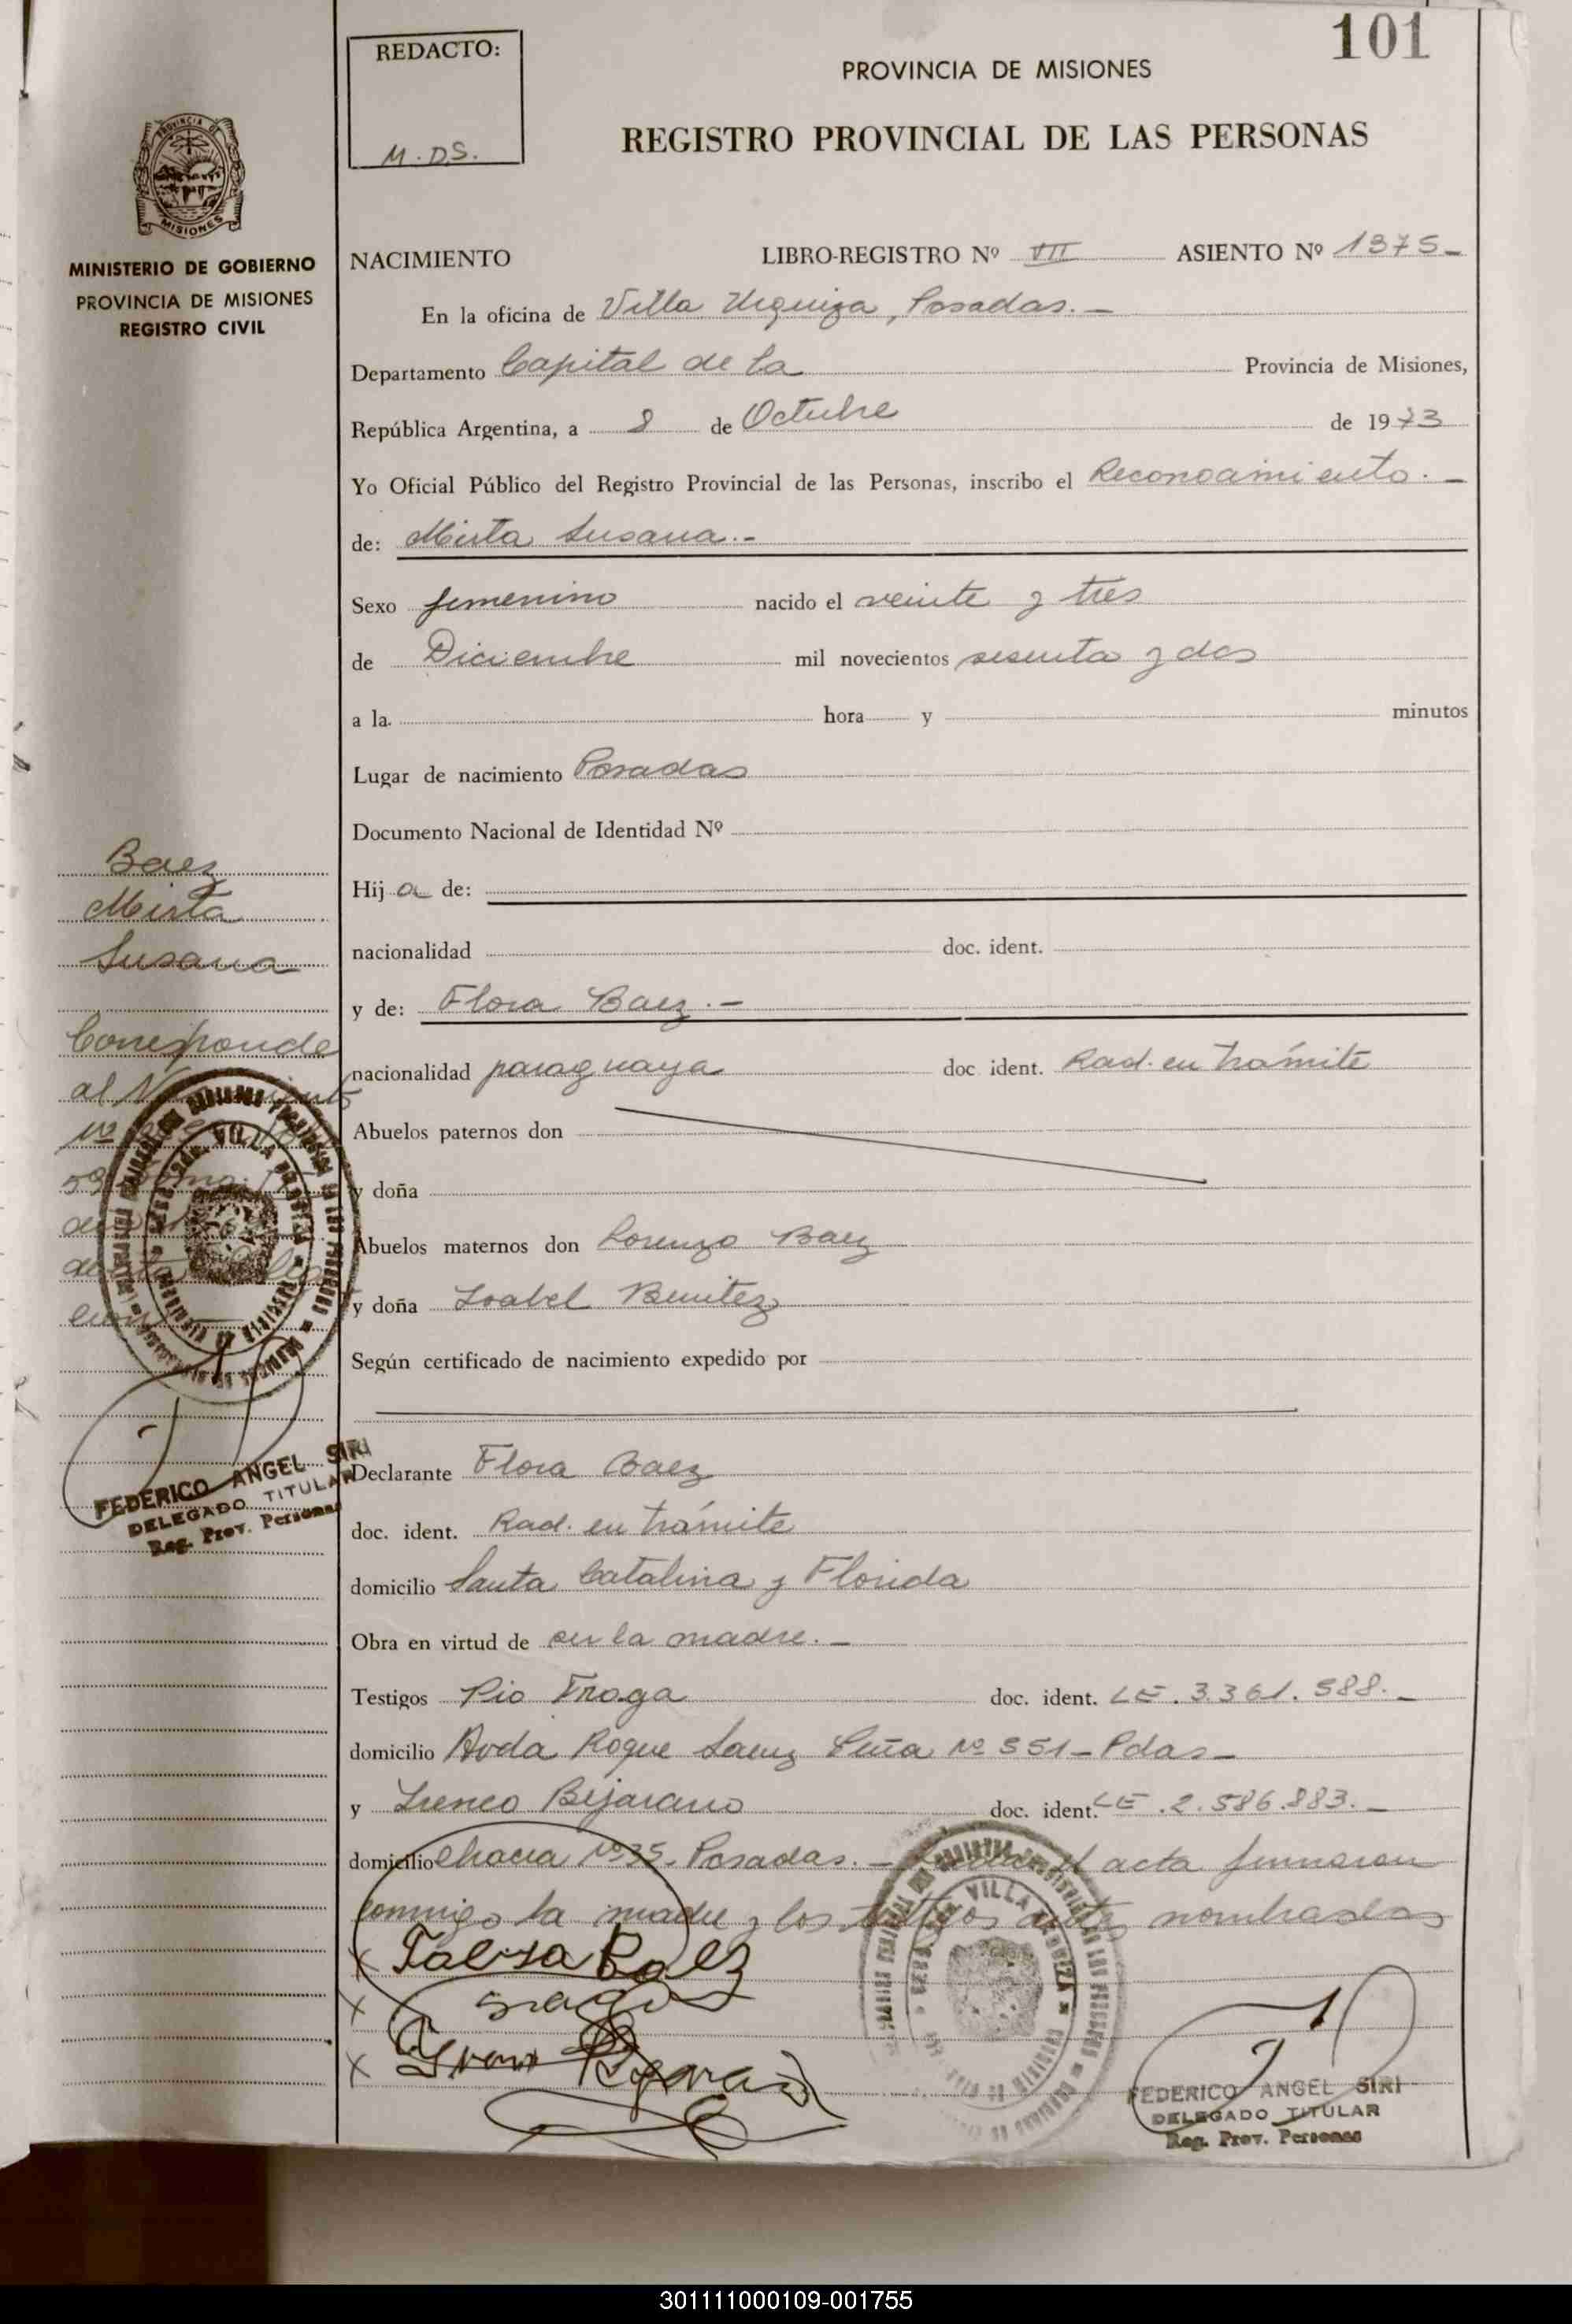 101
REDACTO:
M. D.S.
PROVINCIA DE MISIONES
REGISTRO PROVINCIAL DE LAS PERSONAS
PROVINCIA DE
MISIONES
MINISTERIO DE GOBIERNO
PROVINCIA DE MISIONES
REGISTRO CIVIL
NACIMIENTO LIBRO-REGISTRO Nº VII ASIENTO Nº 1375-
En la oficina de Villa Urquiza, Posadas.-
Departamento Capital de la Provincia de Misiones,
República Argentina, a 8 de Octubre de 1973
Yo Oficial Público del Registro Provincial de las Personas, inscribo el Reconocimiento.-
de: Mirta Susana.-
Sexo femenino nacido el veinte y tres
de Diciembre mil novecientos sesenta y dos
a la hora y minutos
Lugar de nacimiento Posadas
Documento Nacional de Identidad Nº
Hija de:
nacionalidad doc. ident.
y de: Flora Baez.-
nacionalidad paraguaya doc ident. Rad. en trámite
Abuelos paternos don
y doña
Abuelos maternos don Lorenzo Baez
y doña Isabel Benitez
Según certificado de nacimiento expedido por
Declarante Flora Baez
doc. ident. Rad. en trámite
domicilio Santa Catalina y Florida
Obra en virtud de ser la madre.-
Testigos Pio Fraga doc. ident. LE. 3.361.588.-
domicilio Avda Roque Saenz Peña Nº 551- Pdas-
y Ireneo Bejarano doc. ident. LE.2.586.883.-
domicilio Chacra Nº 35- Posadas.- el acta firmaron
conmigo la madre y los testigos antes nombrados
Baez
Mirta
Susana
Corresponde
al
Nº
VILLA URQUIZA
FEDERICO ANGEL SIRI
DELEGADO TITULAR
Reg. Prov. Personas
x Baez
x
x
VILLA URQUIZA
FEDERICO ANGEL SIRI
DELEGADO TITULAR
Reg. Prov. Personas
301111000109-001755